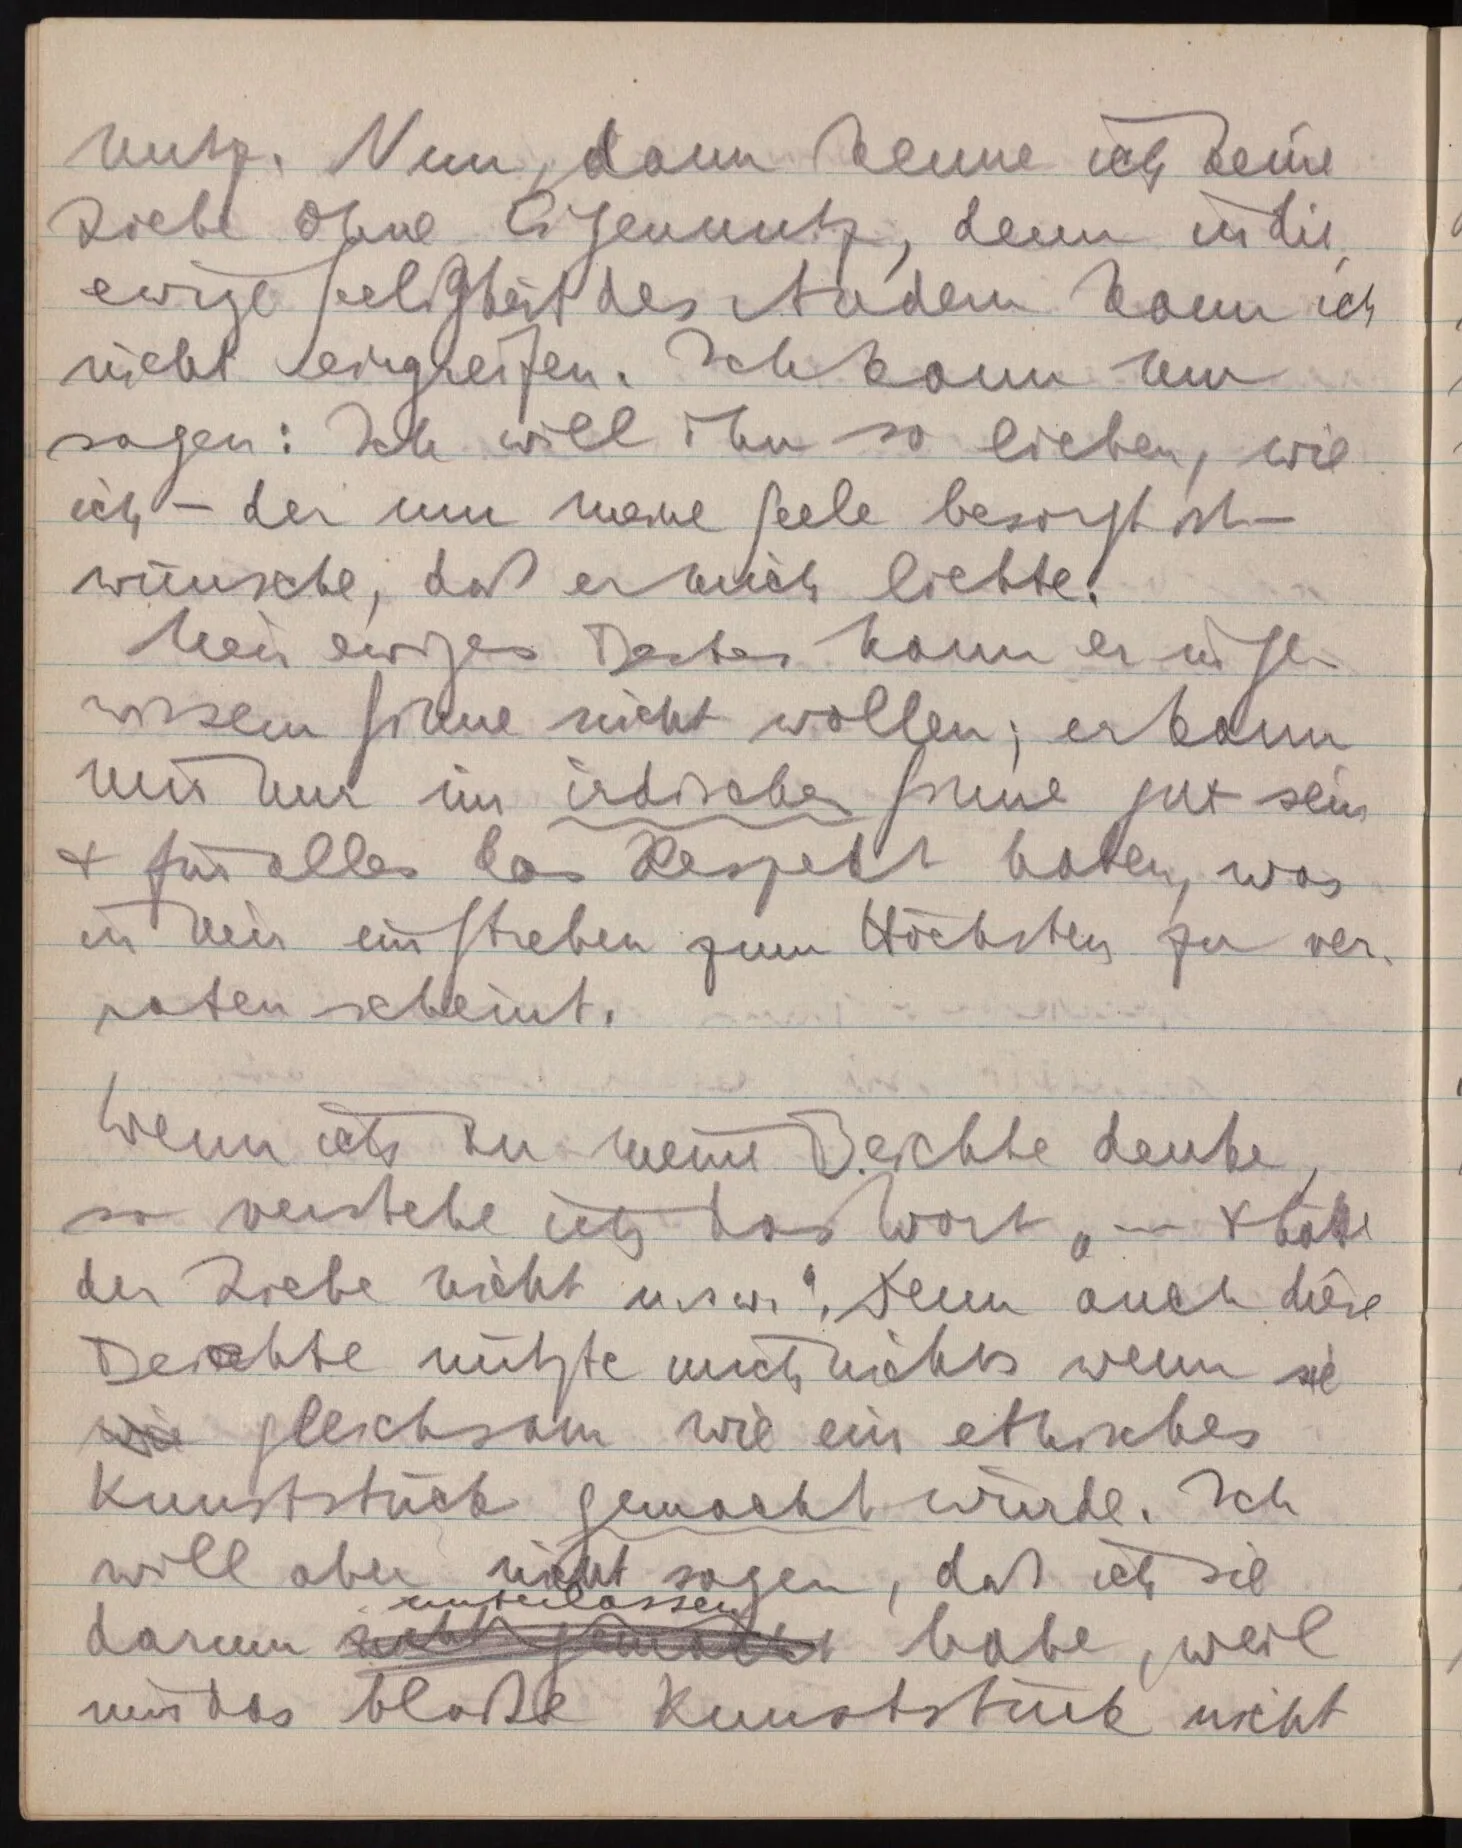 nutz. Nun, dann kenne ich keine
Liebe ohne Eigennutz, denn in die
ewige Seligkeit des Andern kann ich
nicht eingreifen. Ich kann nur
sagen: Ich will ihn so lieben, wie
ich – der um meine Seele besorgt ist –
wünsche, daß er mich liebte.
Mein ewiges Bestes kann er in ge-
wissem Sinne nicht wollen; er kann
mir nur im irdischen Sinne gut sein
& für alles das Respekt haben, was
in mir ein Streben zum Höchsten zu ver-
raten scheint.
Wenn ich an meine Beichte denke,
so verstehe ich das Wort „ — & hätte
der Liebe nicht u.s.w.“. Denn auch diese
Beichte nützte mich nichts wenn sie
wie gleichsam wie ein ethisches
Kunststück gemacht würde. Ich
will aber nicht sagen, daß ich sie
unterlassen
darum nicht gemacht habe, weil
mir das bloße Kunststück nicht